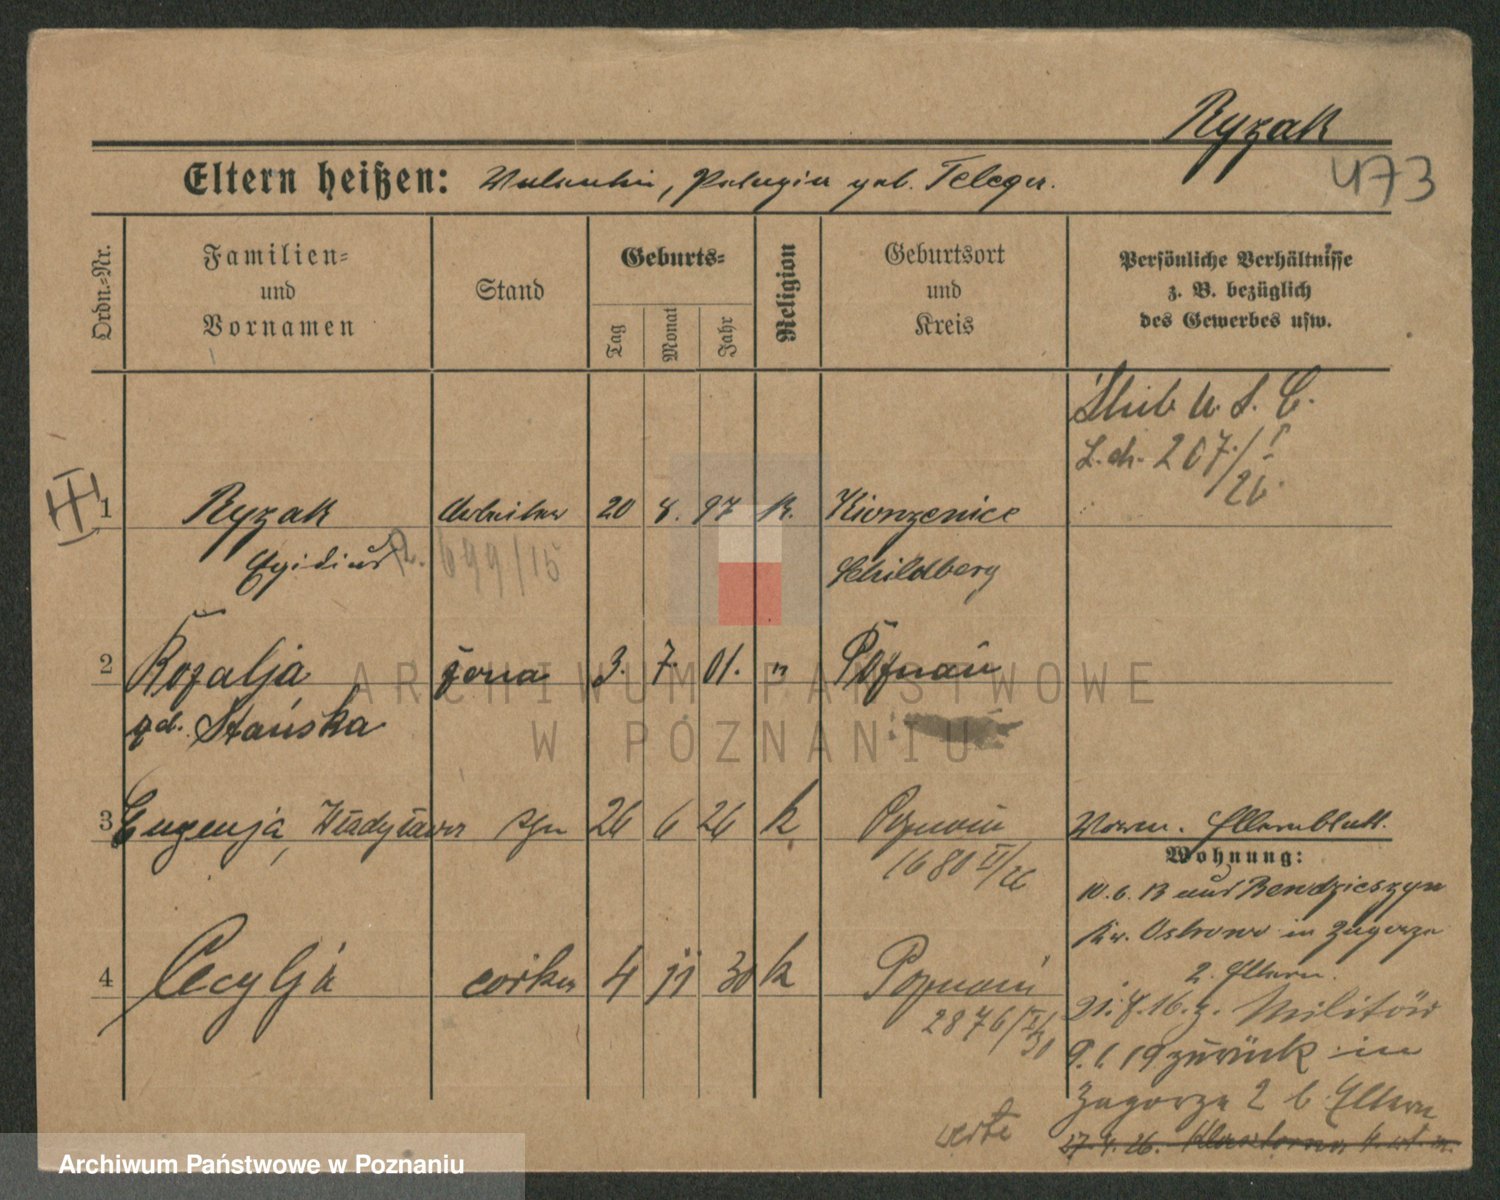 Ryzak
473
Eltern heißen: Walentin, Pelagia geb. Teleger.
Ordn.-Nr.
Familien- und Vornamen
Stand
Geburts-
Tag
Monat
Jahr
Religion
Geburtsort und Kreis
Persönliche Verhältnisse z. B. bezüglich des Gewerbes usw.
Ślub U. S. C.
L. ch. 207/I 26.
1 Ryzak Arbeiter 20 8. 97 k.
Egidius 699/15 Schildberg
2 Rozalja żona 3. 7. 01. " Poznań
zd. Stańska
3 Eugenja, Władysław syn 26 6 26 k Poznań
1680 II/26
Wohnung:
10. 6. 13 aus Bendzieszyn
Kr. Ostrowo in Zagorze
2. Eltern.
4 Cecylja córka 4 11 30 k Poznań
2876/II/30
21. 8. 16. z. Militär
9. 1. 19 zurück in
Zagorze 2 b. Eltern
verte
27. 4. 26.
ARCHIWUM PAŃSTWOWE
W POZNANIU
Archiwum Państwowe w Poznaniu